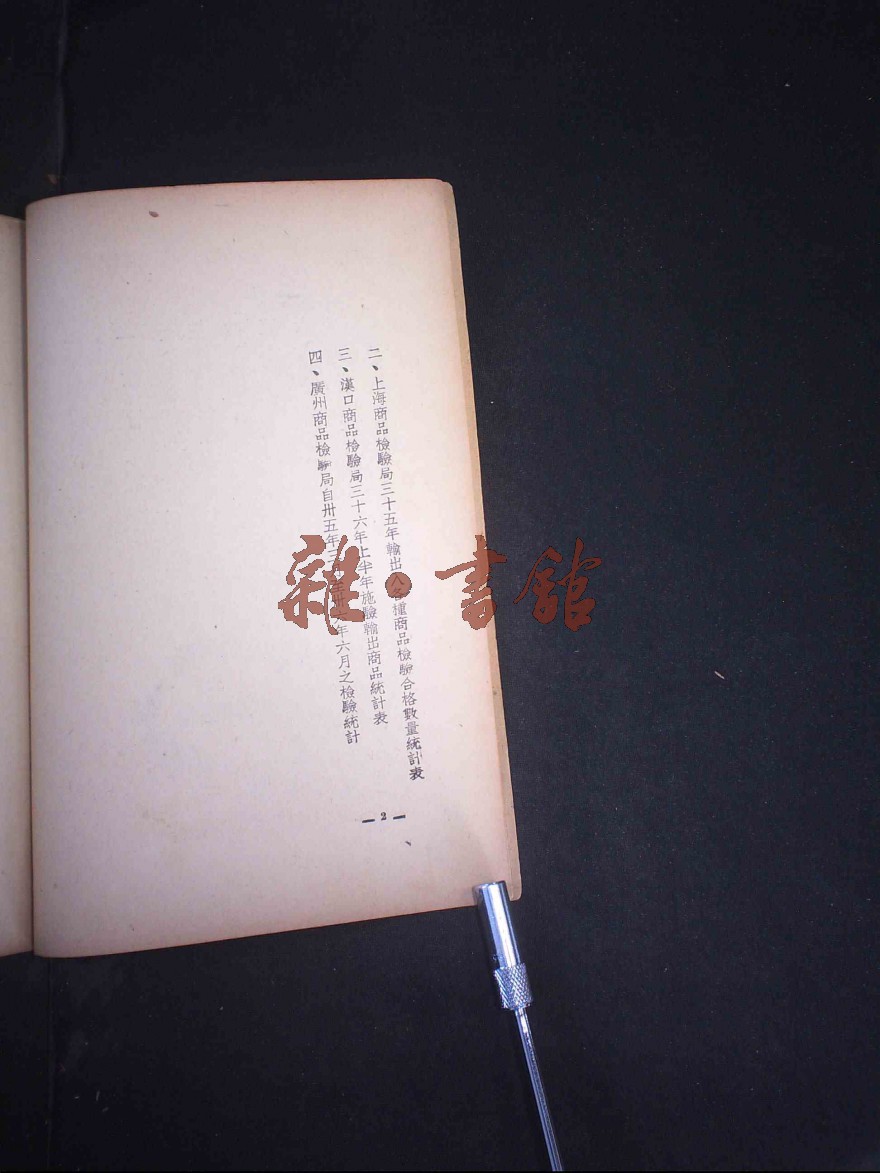 二、上海商品檢驗局三十五年輸出入各種商品檢驗合格數量統計表
三、漢口商品檢驗局三十六年上半年施驗輸出商品統計表
四、廣州商品檢驗局自卅五年三月至卅六年六月之檢驗統計
—2—
雜·書館